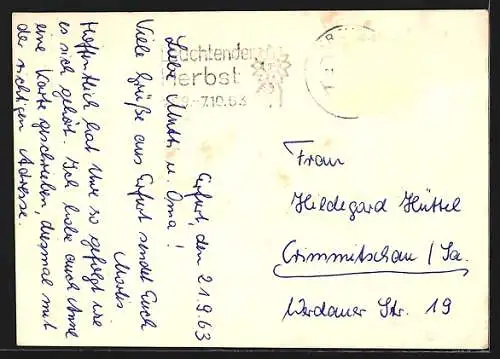 Erfurt, den 21.9.63
Liebe Mutti u. Oma!
Viele Grüße aus Erfurt sendet Euch
Hoffentlich hat Uwe so gefolgt wie
es sich gehört. Ich habe auch Anne
eine Karte geschrieben, diesmal mit
der richtigen Adresse.
uchtender
Herbst
-7.10.63
Frau
Hildegard Hüttel
Crimmitschau / Sa.
Werdauer Str. 19